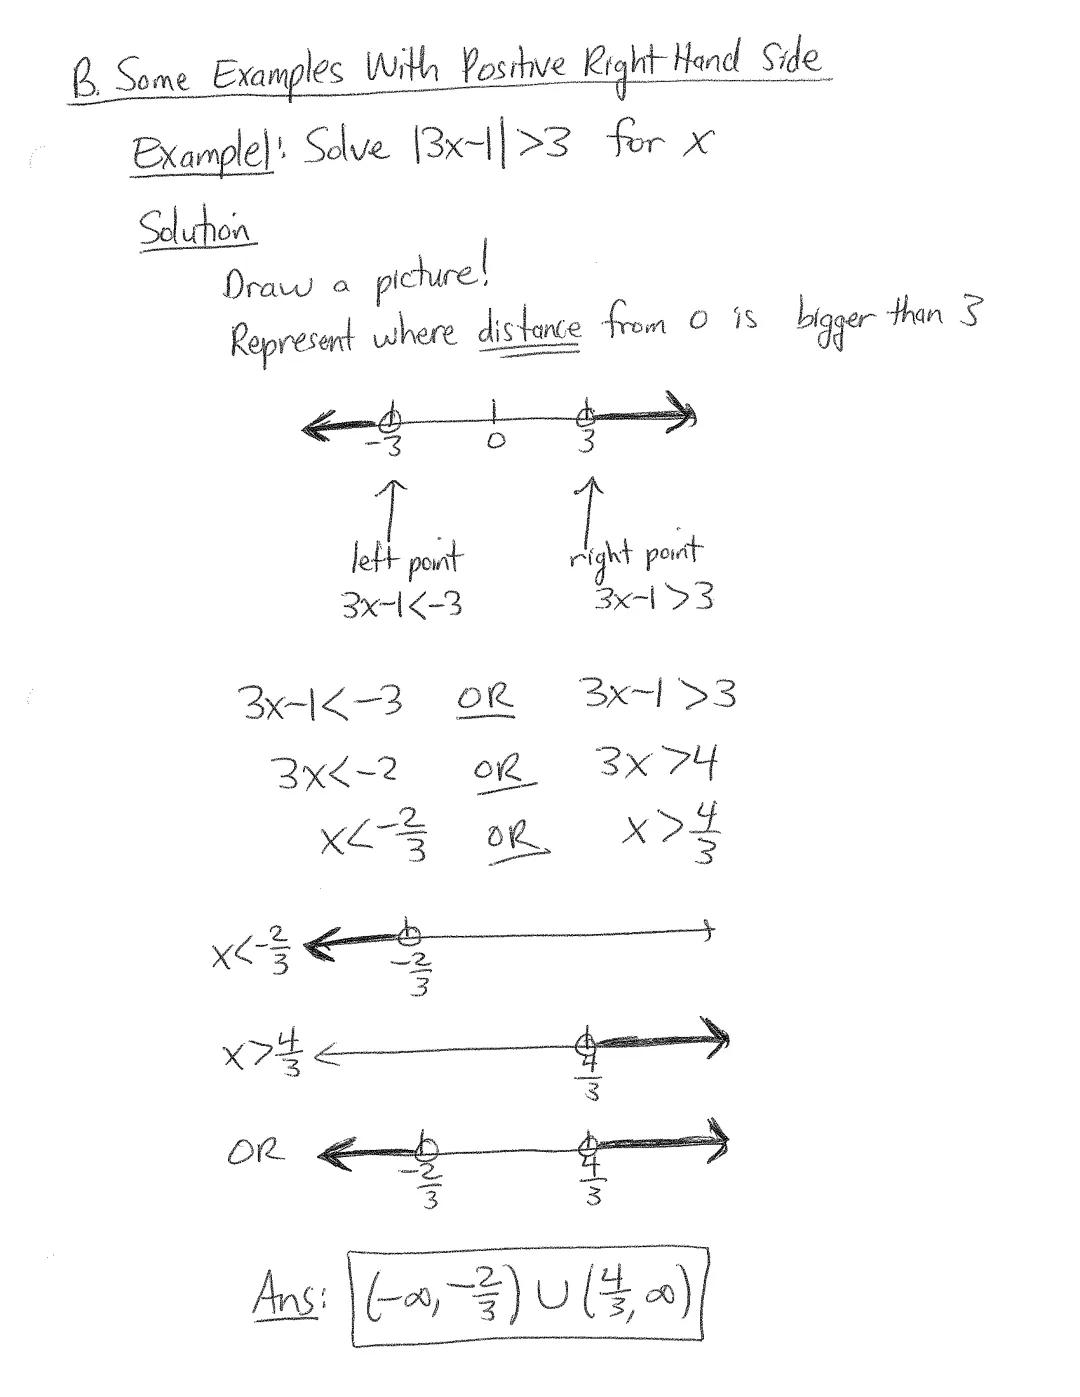 B. Some Examples With Positive Right Hand Side
Example 1: Solve |3x-1|>3 for x
Solution
Draw a picture!
Represent where distance from 0 is bigger than 3
-3 0 3
left point right point
3x-1<-3 3x-1>3
3x-1<-3 OR 3x-1>3
3x<-2 OR 3x>4
x<-2/3 OR x>4/3
x<-2/3
-2/3
x>4/3
4/3
OR
-2/3 4/3
Ans: (-∞, -2/3) ∪ (4/3, ∞)